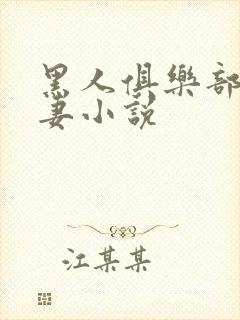 黑人俱樂部
妻小說
江某某